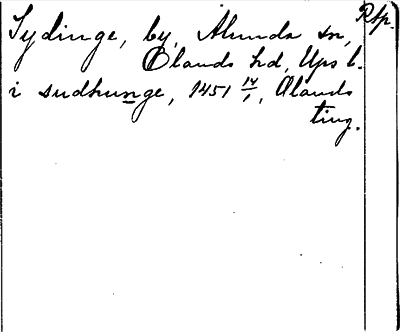 Rtp.
Sydinge, by, Alunda sn,
Olands hd, Ups l.
i sudhunge, 1451 14/1, Olands
ting.